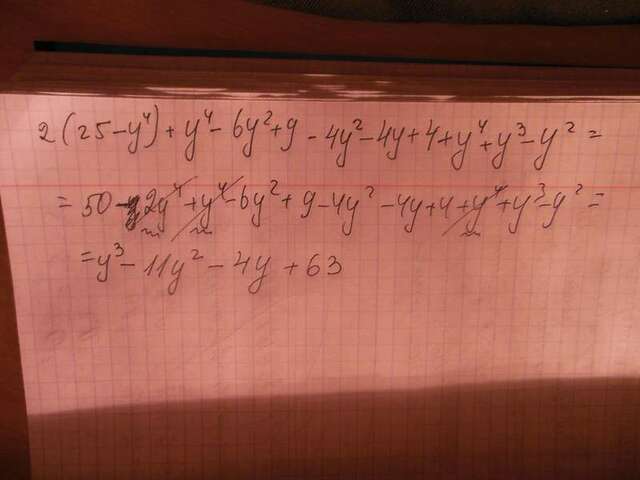 2(25-y⁴)+y⁴-6y²+9-4y²-4y+4+y⁴+y³-y²=
=50-2y⁴+y⁴-6y²+9-4y²-4y+4+y⁴+y³-y²=
=y³-11y²-4y+63